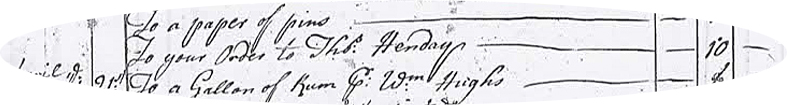 To a paper of pins
To your Order to Tho.s Henday 10
21st To a Gallon of Rum P.r W.m Hughs